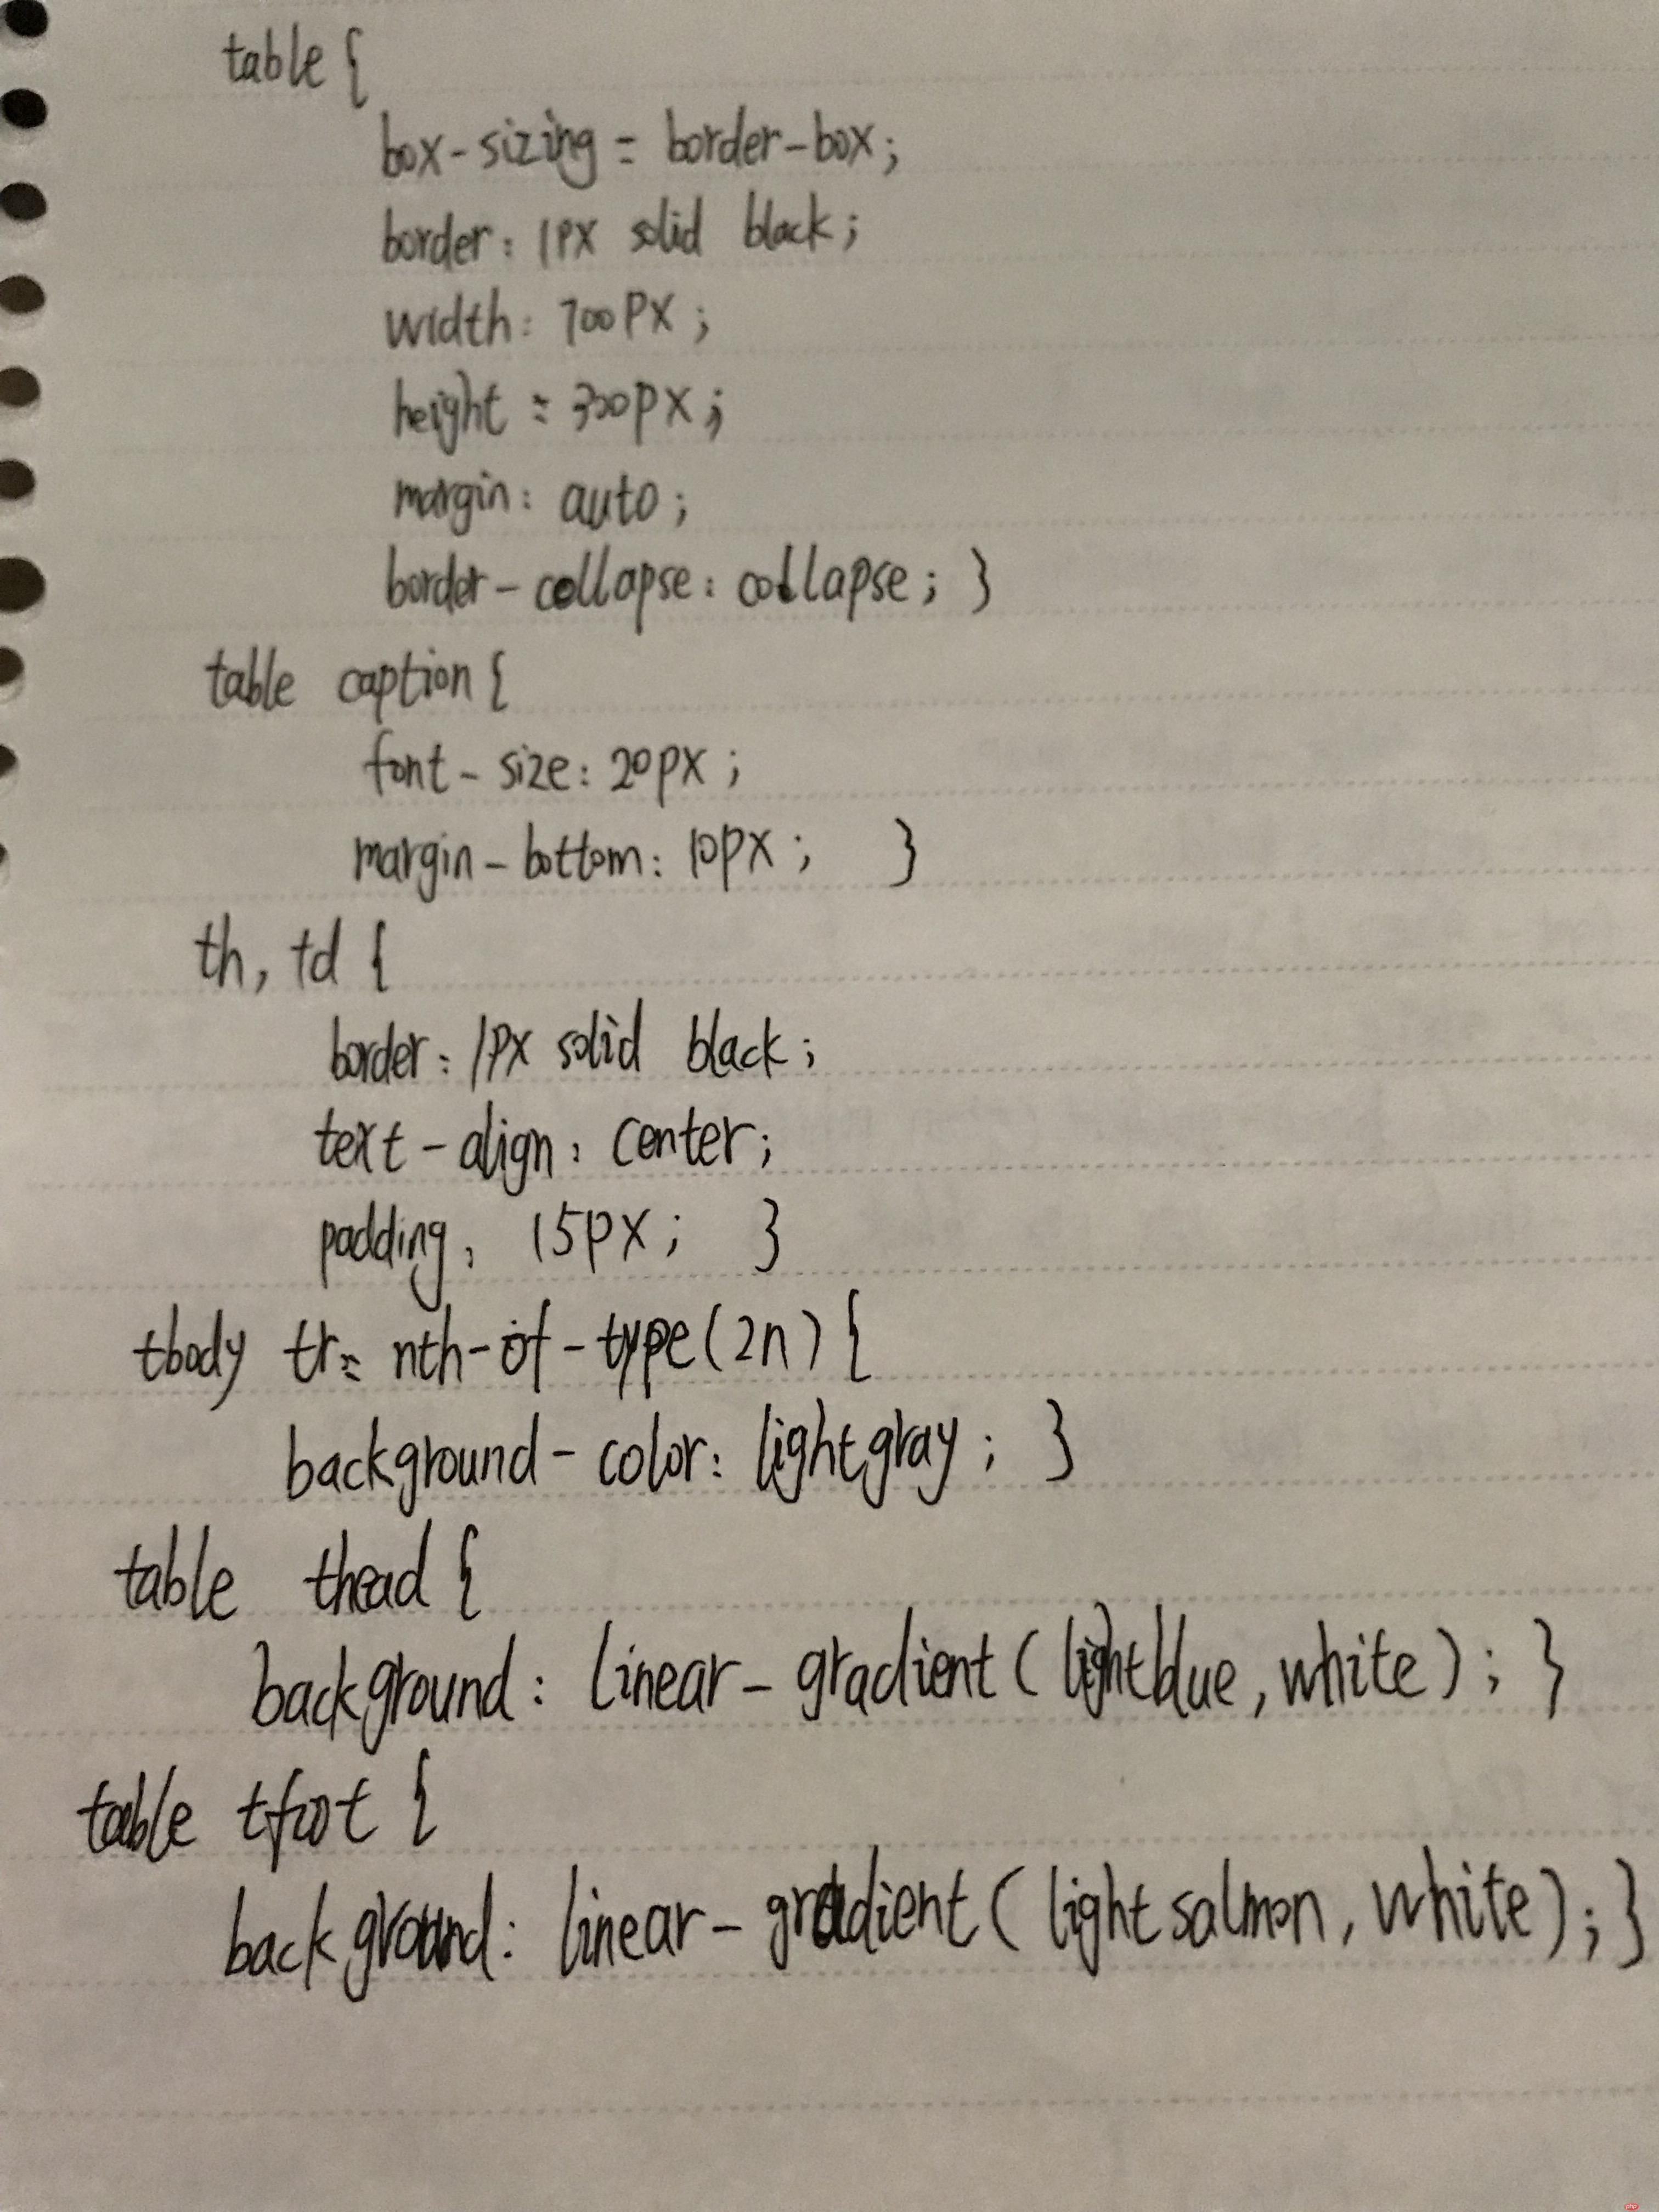 table {
box-sizing = border-box;
border: 1px solid black;
width: 700px;
height = 300px;
margin: auto;
border-collapse: collapse; }
table caption {
font-size: 20px;
margin-bottom: 10px; }
th, td {
border: 1px solid black;
text-align: center;
padding: 15px; }
tbody tr: nth-of-type(2n) {
background-color: lightgray; }
table thead {
background: linear-gradient(lightblue, white); }
table tfoot {
background: linear-gradient(lightsalmon, white); }
php